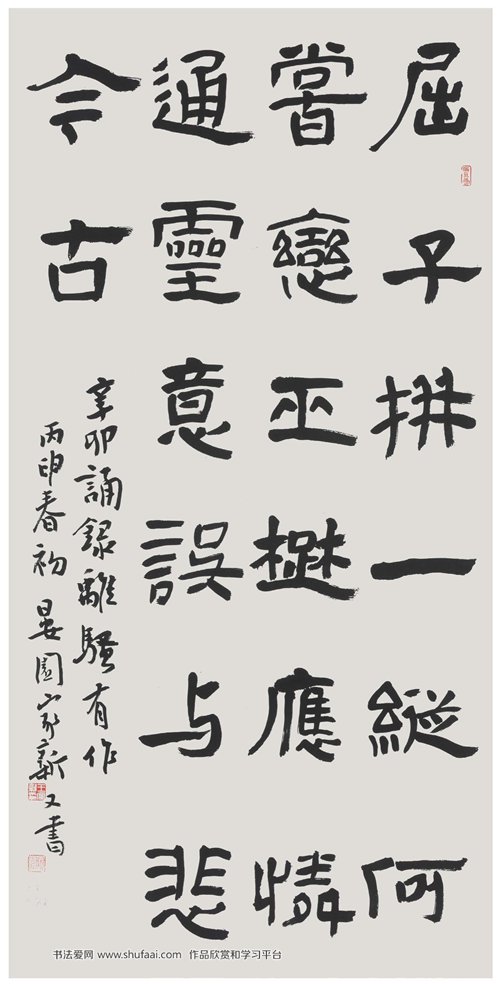 屈子拼一縱何
嘗戀巫楚應憐
通靈意誤与悲
今古
辛卯誦録離騷有作
丙申春初晏園家新又書
书法爱网 www.shufaai.com 作品欣赏和学习平台